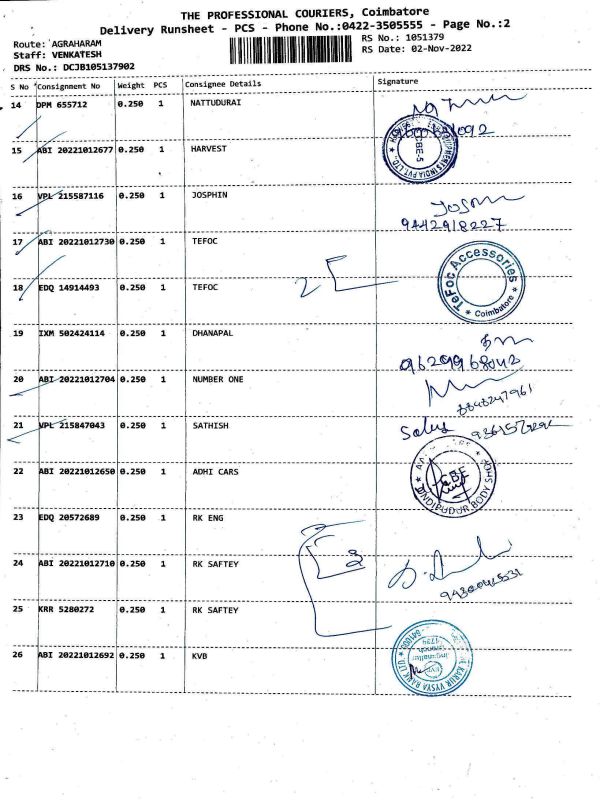 THE PROFESSIONAL COURIERS, Coimbatore
Delivery Runsheet - PCS - Phone No.:0422-3505555 - Page No.:2
Route: AGRAHARAM
Staff: VENKATESH
DRS No.: DCJB105137902
RS No.: 1051379
RS Date: 02-Nov-2022
S No Consignment No Weight PCS Consignee Details Signature
14 DPM 655712 0.250 1 NATTUDURAI
15 ABI 20221012677 0.250 1 HARVEST
16 VPL 215587116 0.250 1 JOSPHIN
9442918227
17 ABI 20221012730 0.250 1 TEFOC
TeFoc Accessories
* Coimbatore *
18 EDQ 14914493 0.250 1 TEFOC 2
19 IXM 502424114 0.250 1 DHANAPAL
9629968042
20 ABI 20221012704 0.250 1 NUMBER ONE
21 VPL 215847043 0.250 1 SATHISH
22 ABI 20221012650 0.250 1 ADHI CARS
CBE
23 EDQ 20572689 0.250 1 RK ENG
24 ABI 20221012710 0.250 1 RK SAFTEY 3
25 KRR 5280272 0.250 1 RK SAFTEY
26 ABI 20221012692 0.250 1 KVB